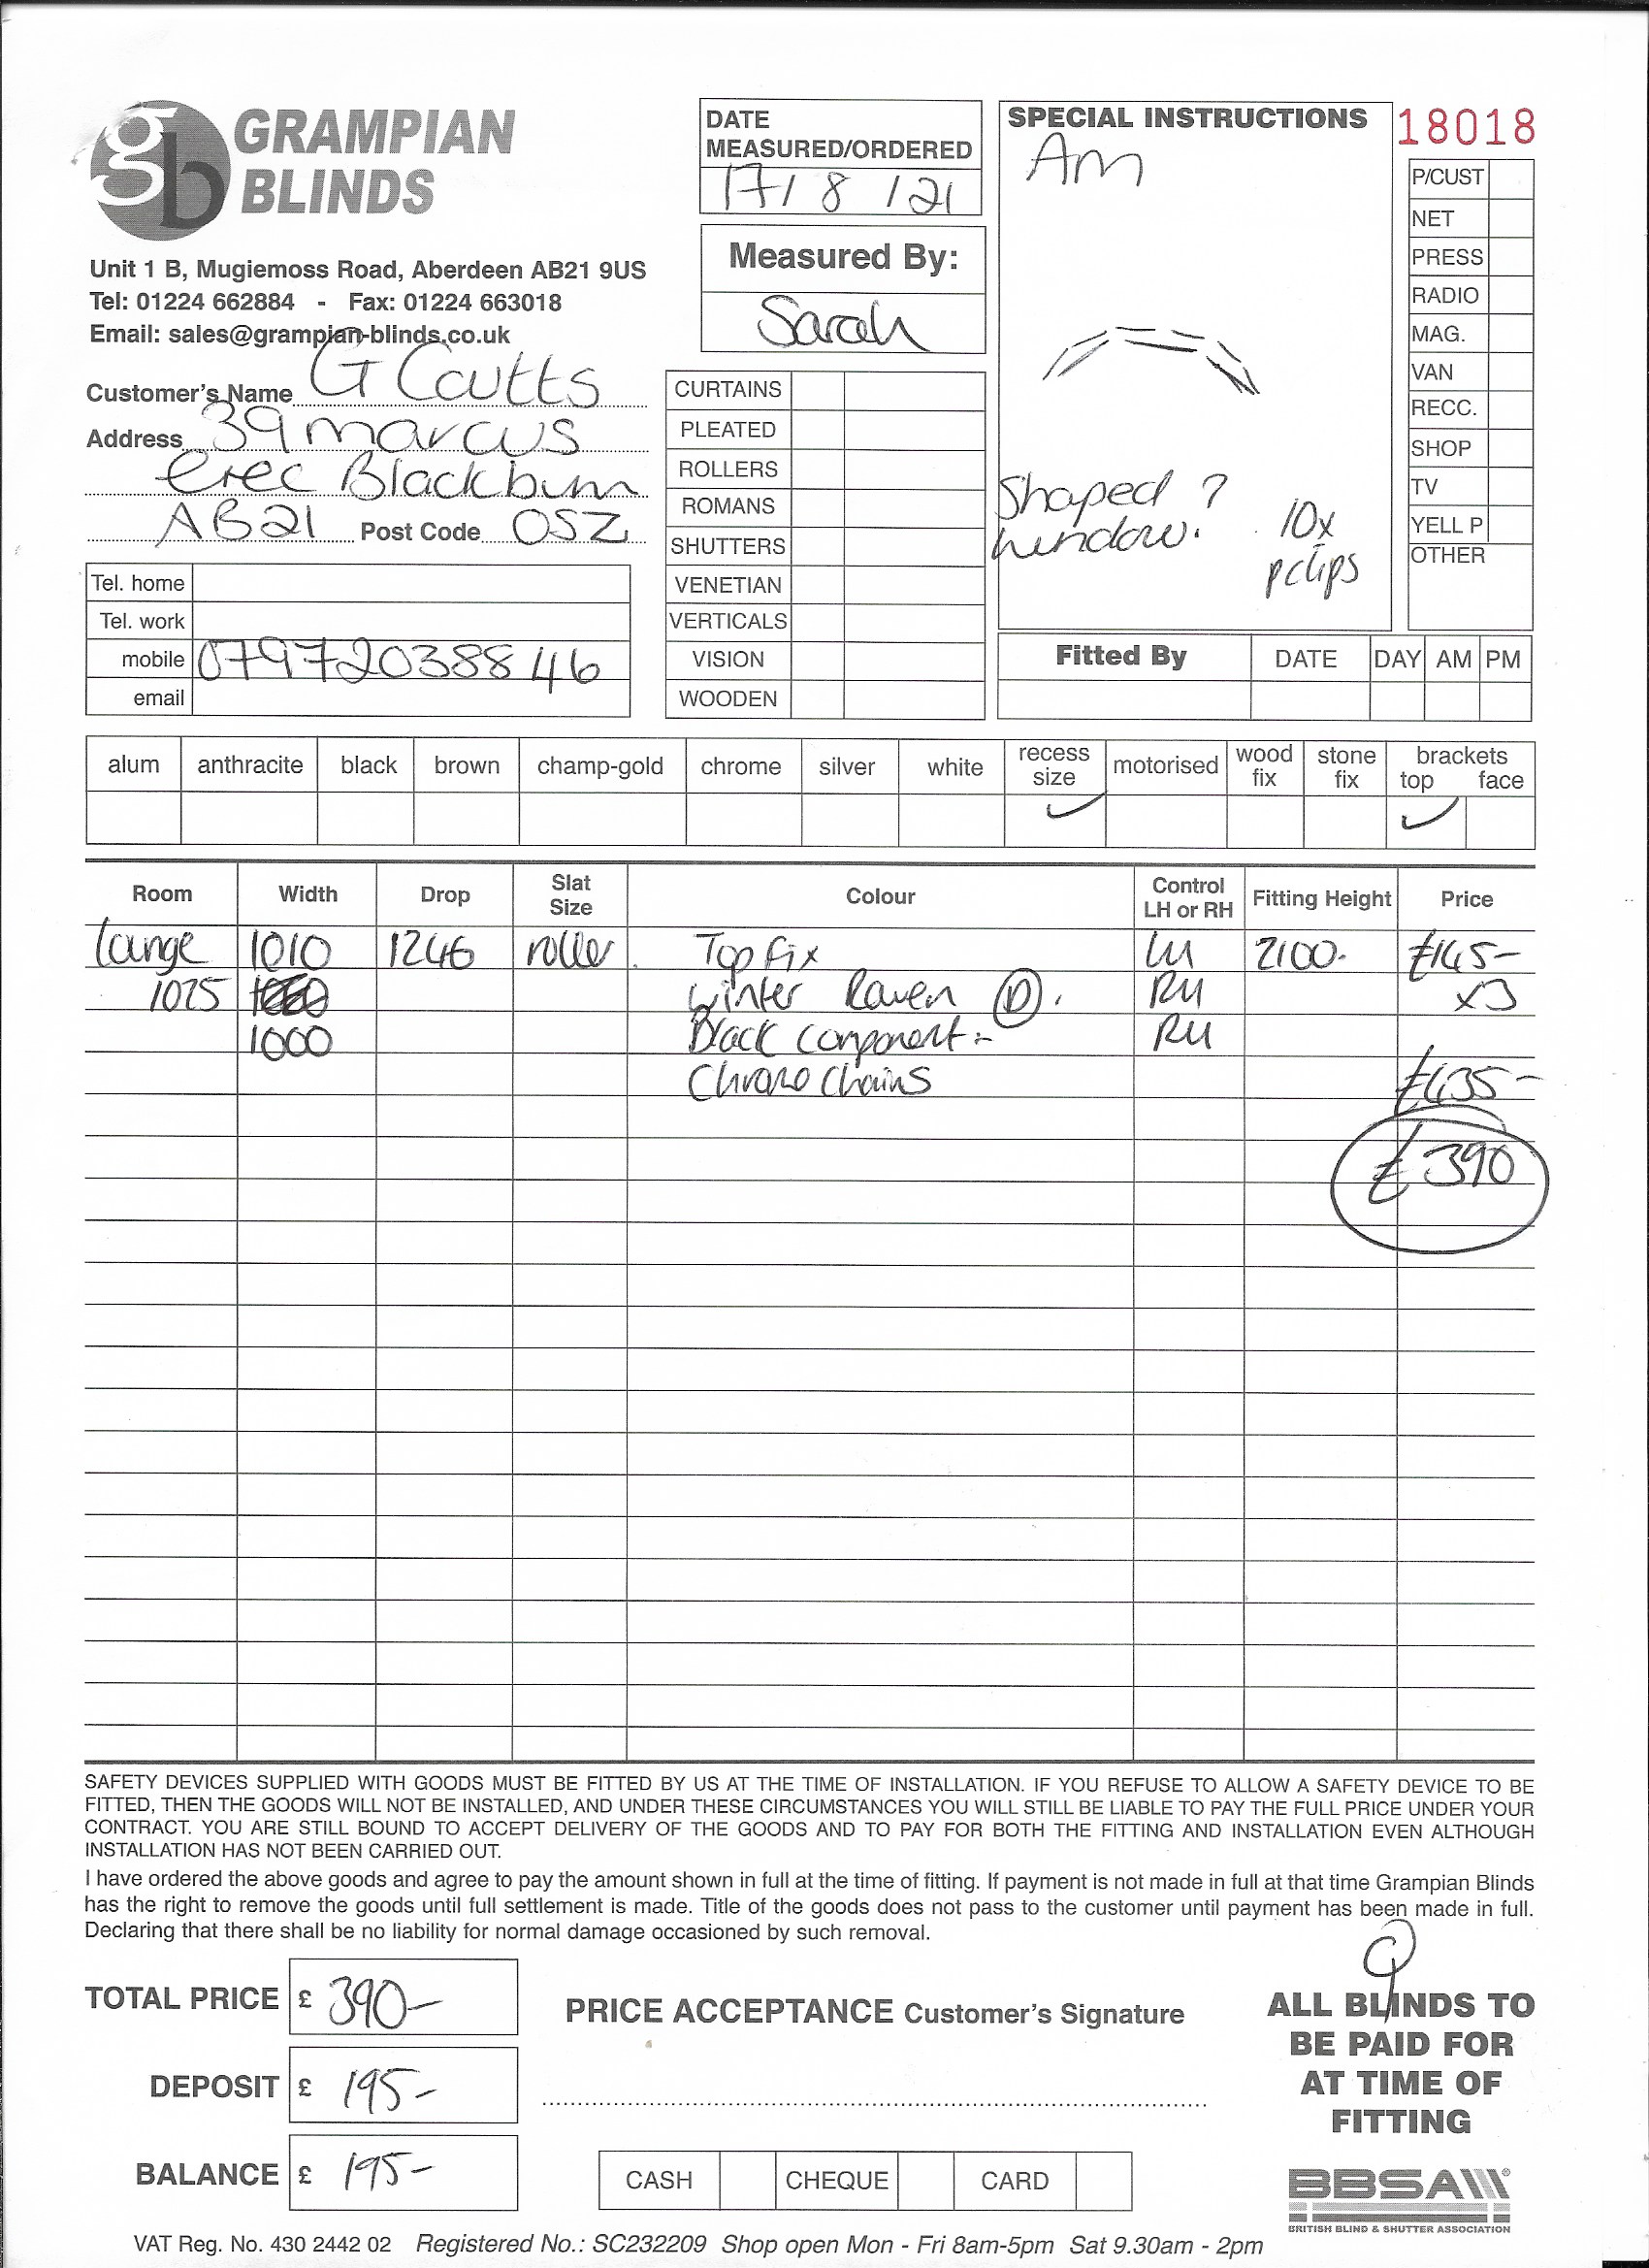 gb GRAMPIAN
BLINDS
Unit 1 B, Mugiemoss Road, Aberdeen AB21 9US
Tel: 01224 662884 - Fax: 01224 663018
Email: sales@grampian-blinds.co.uk
Customer's Name G Coutts
Address 39 marcus
Crec Blackburn
AB21 Post Code 0SZ
Tel. home
Tel. work
mobile 07972038846
email
DATE
MEASURED/ORDERED
17/8/21
Measured By:
Sarah
CURTAINS
PLEATED
ROLLERS
ROMANS
SHUTTERS
VENETIAN
VERTICALS
VISION
WOODEN
SPECIAL INSTRUCTIONS
Am
Shaped ?
window.
10x
pclips
18018
P/CUST
NET
PRESS
RADIO
MAG.
VAN
RECC.
SHOP
TV
YELL P
OTHER
Fitted By DATE DAY AM PM
alum anthracite black brown champ-gold chrome silver white recess size motorised wood fix stone fix brackets top face
Room Width Drop Slat Size Colour Control LH or RH Fitting Height Price
lounge 1010 1246 roller Top fix LH 2100. £145-
1025 Winter Raven (D). RH x3
1000 Black component RH
Chrome Chains £435-
£390
SAFETY DEVICES SUPPLIED WITH GOODS MUST BE FITTED BY US AT THE TIME OF INSTALLATION. IF YOU REFUSE TO ALLOW A SAFETY DEVICE TO BE
FITTED, THEN THE GOODS WILL NOT BE INSTALLED, AND UNDER THESE CIRCUMSTANCES YOU WILL STILL BE LIABLE TO PAY THE FULL PRICE UNDER YOUR
CONTRACT. YOU ARE STILL BOUND TO ACCEPT DELIVERY OF THE GOODS AND TO PAY FOR BOTH THE FITTING AND INSTALLATION EVEN ALTHOUGH
INSTALLATION HAS NOT BEEN CARRIED OUT.
I have ordered the above goods and agree to pay the amount shown in full at the time of fitting. If payment is not made in full at that time Grampian Blinds
has the right to remove the goods until full settlement is made. Title of the goods does not pass to the customer until payment has been made in full.
Declaring that there shall be no liability for normal damage occasioned by such removal.
TOTAL PRICE £ 390-
DEPOSIT £ 195-
BALANCE £ 195-
PRICE ACCEPTANCE Customer's Signature
CASH CHEQUE CARD
ALL BLINDS TO
BE PAID FOR
AT TIME OF
FITTING
BBSA
BRITISH BLIND & SHUTTER ASSOCIATION
VAT Reg. No. 430 2442 02 Registered No.: SC232209 Shop open Mon - Fri 8am-5pm Sat 9.30am - 2pm